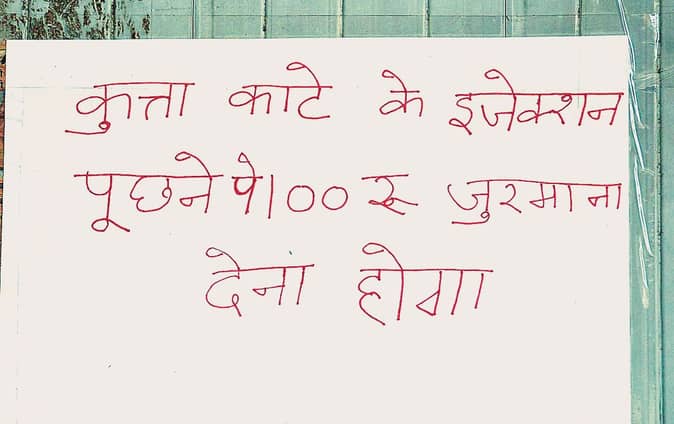 कुत्ता काटे के इजेक्शन
पूछने पे 100 रू जुरमाना
देना होगा